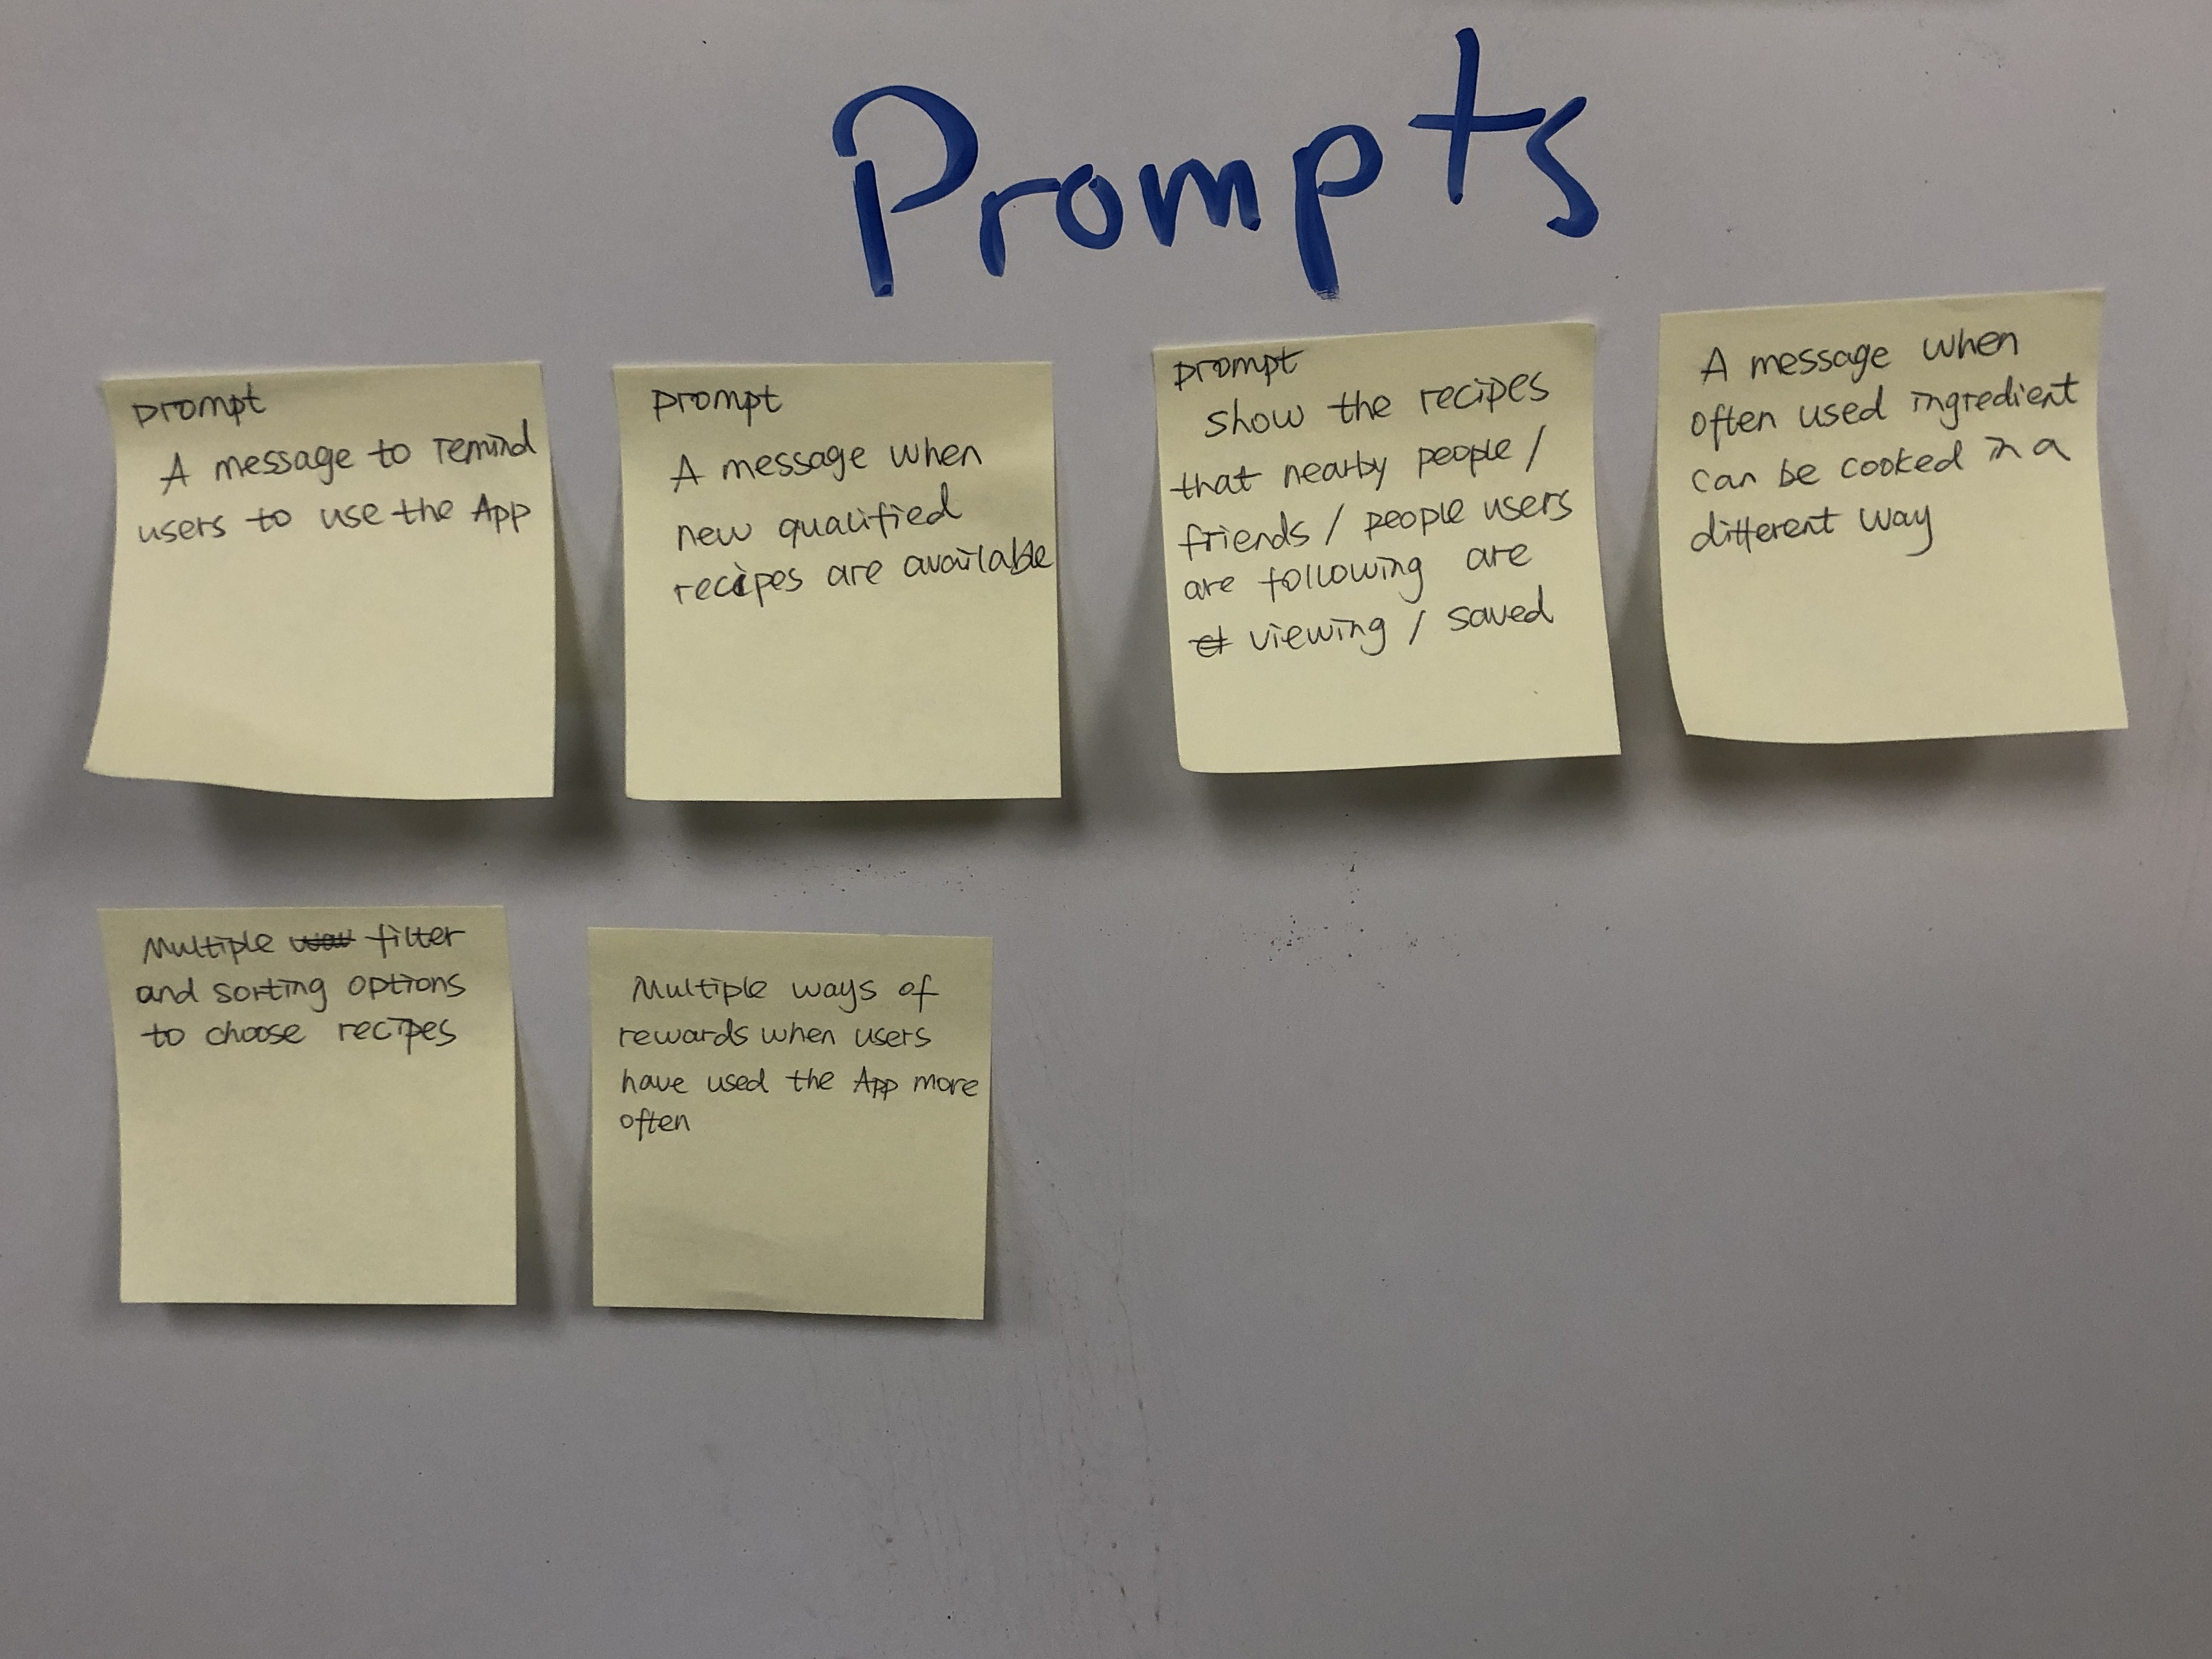 Prompts
prompt
A message to remind
users to use the App
prompt
A message when
new qualified
recipes are available
prompt
show the recipes
that nearby people /
friends / people users
are following are
viewing / saved
A message when
often used ingredient
can be cooked in a
different way
Multiple filter
and sorting options
to choose recipes
Multiple ways of
rewards when users
have used the App more
often